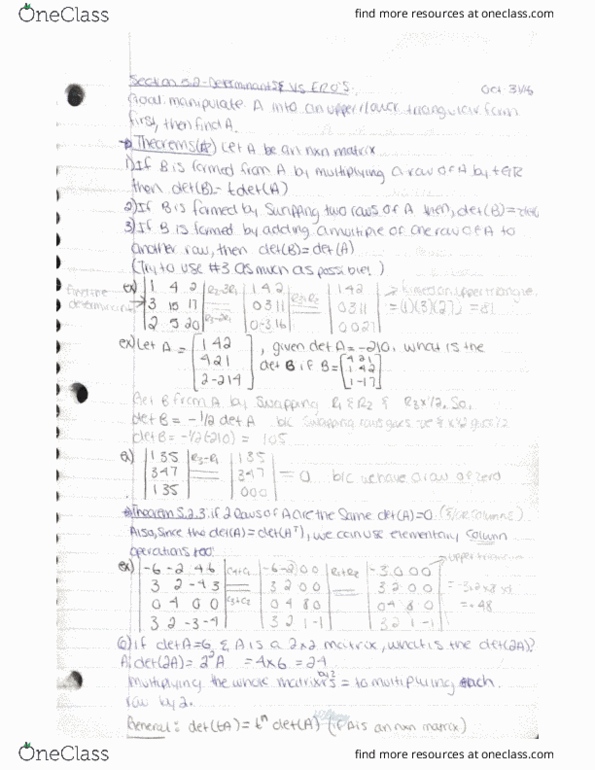 OneClass
find more resources at oneclass.com
Section 5.2 - Determinants vs ERO's.
Oct 31/16
Goal: manipulate A into an upper/lower triangular form
first, then find A.
Theorems: Let A be an nxn matrix
1) If B is formed from A by multiplying a row of A by t∈R
then det(B) = t det(A)
2) If B is formed by swapping two rows of A then, det(B) =
3) If B is formed by adding a multiple of one row of A to
another row, then det(B) = det(A)
(Try to use #3 as much as possible!)
ex) | 1 4 2 | R2-3R1 | 1 4 2 | | 1 4 2 | based on upper triangle
determinant 3 15 17 | 0 3 11 | R3+R2 | 0 3 11 | = (1)(3)(27) = 81
2 5 20 | | 0 -3 16 | | 0 0 27 |
ex) Let A = [ 1 4 2 ] , given det A = -210, what is the
4 2 1 det B if B = [ 4 2 1
2 -2 14 1 4 2
1 -1 7 ]
Get B from A by swapping R1 & R2 & R3x1/2, So,
det B = -1/2 det A b/c swapping rows gives -ve & x1/2 gives 1/2
det B = -1/2(-210) = 105
ex) | 1 3 5 | R3-R1 | 1 3 5 |
3 4 7 | 3 4 7 | = 0 b/c we have a row of zero
1 3 5 | 0 0 0 |
Theorem 5.2.3: if 2 rows of A are the same det(A)=0 (& for columns)
Also, since the det(A) = det(A^T), we can use elementary column
operations too!
upper triangular
ex) | -6 -2 4 6 | | -6 -2 0 0 | R1+R2 | -3 0 0 0 |
3 2 -4 3 | 3 2 0 0 | 3 2 0 0 |
0 4 0 0 | 0 4 8 0 | 0 4 8 0 | = 48
3 2 -3 -4 | 3 2 1 -1 | 3 2 1 -1 |
6) if det A=6, & A is a 2x2 matrix, what is the det(2A)?
A: det(2A) = 2^2 A = 4x6 = 24
multiplying the whole matrix by 2 = to multiplying each
row by 2.
General: det(tA) = t^n det(A) (if A is an nxn matrix)
OneClass
find more resources at oneclass.com